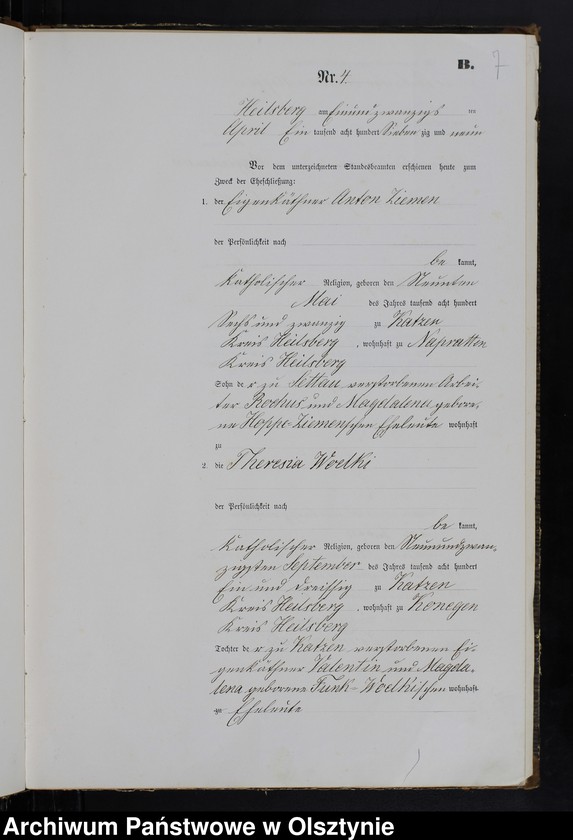 B.
7
Nr. 4.
Heilsberg am Einundzwanzigs ten
April Ein tausend acht hundert Siebenzig und neun
Vor dem unterzeichneten Standesbeamten erschienen heute zum
Zweck der Eheschließung:
1. der Eigenkäthner Anton Ziemen
der Persönlichkeit nach
be kannt,
Katholischer Religion, geboren den Neunten
Mai des Jahres tausend acht hundert
Sechs und zwanzig zu Katzen
Kreis Heilsberg, wohnhaft zu Napratten
Kreis Heilsberg
Sohn der zu Settau verstorbenen Arbei-
ter Rochus und Magdalena gebore-
ne Hoppe-Ziemenschen Eheleute wohnhaft
zu
2. die Theresia Woelki
der Persönlichkeit nach
be kannt,
Katholischer Religion, geboren den Neunundzwan-
zigsten September des Jahres tausend acht hundert
Ein und dreissig zu Katzen
Kreis Heilsberg, wohnhaft zu Konegen
Kreis Heilsberg
Tochter der zu Katzen verstorbenen Ei-
genkäthner Valentin und Magda-
lena geborene Funk-Woelkischen wohnhaft
zu Eheleute
Archiwum Państwowe w Olsztynie